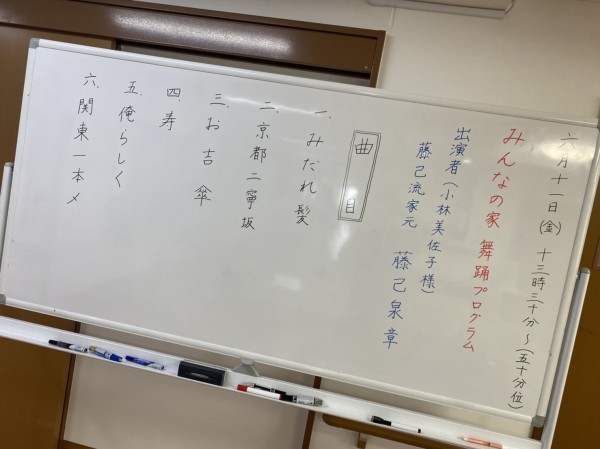 六月十一日(金) 十三時三十分〜(五十分位)
みんなの家 舞踊プログラム
出演者(小林美佐子様)
藤己流家元 藤己泉章
曲目
一、みだれ髪
二、京都二寧坂
三、お吉傘
四、寿
五、俺らしく
六、関東一本〆